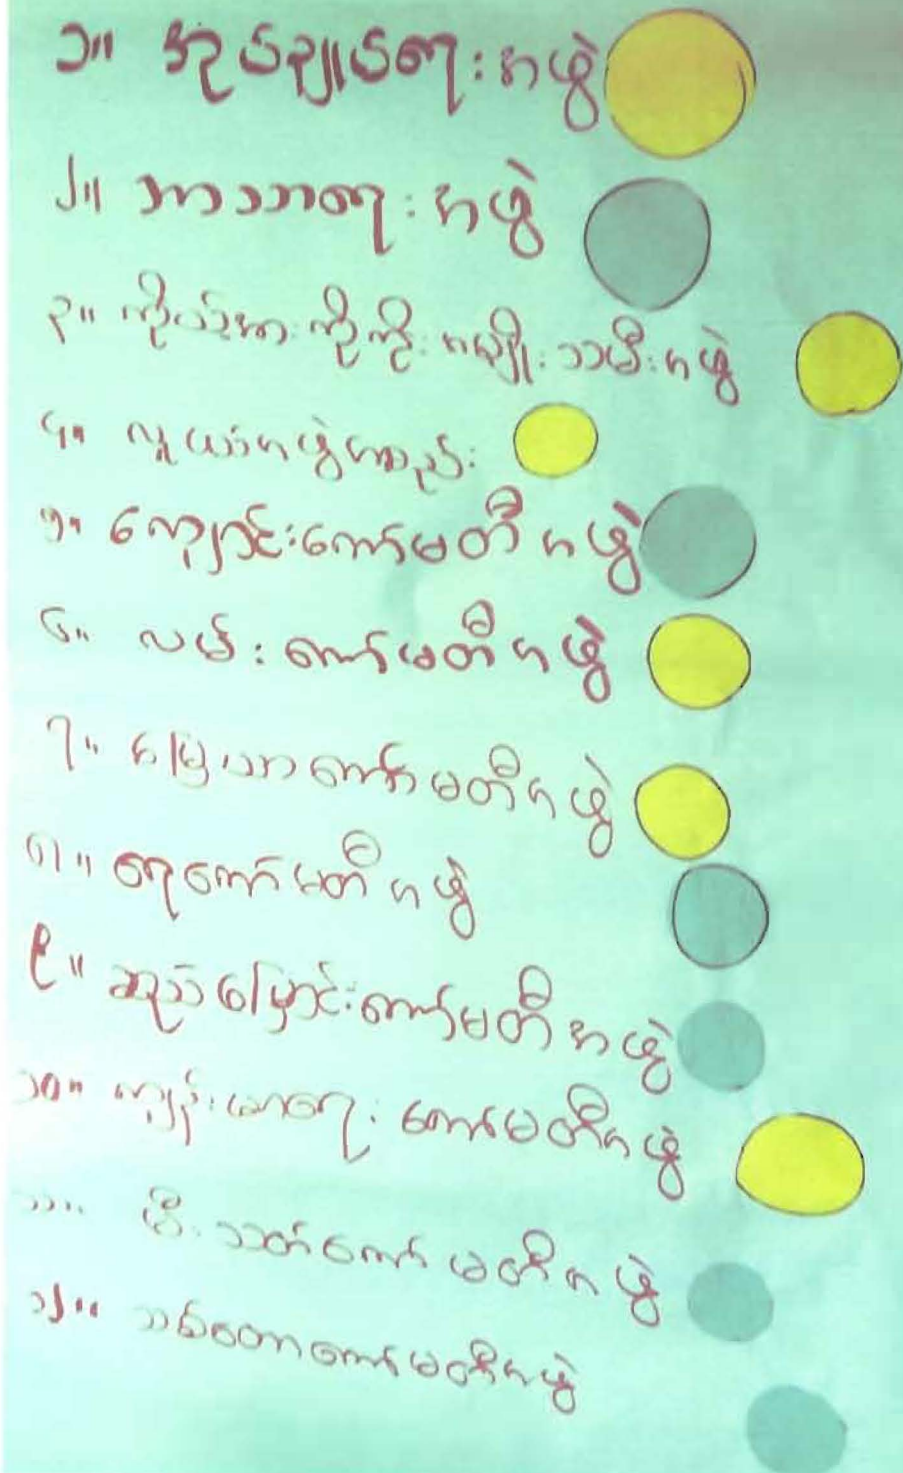 ၁။ အုပ်ချုပ်ရေးအဖွဲ့
၂။ ဘာသာရေးအဖွဲ့
၃။ ကိုယ်အားကိုကိုးအမျိုးသမီးအဖွဲ့
၄။ လူငယ်အဖွဲ့အစည်း
၅။ ကျောင်းကော်မတီအဖွဲ့
၆။ လမ်းကော်မတီအဖွဲ့
၇။ မြေယာကော်မတီအဖွဲ့
၈။ ရေကော်မတီအဖွဲ့
၉။ ဆည်မြောင်းကော်မတီအဖွဲ့
၁၀။ ကျန်းမာရေးကော်မတီအဖွဲ့
၁၁။ မီးသတ်ကော်မတီအဖွဲ့
၁၂။ သစ်တောကော်မတီအဖွဲ့